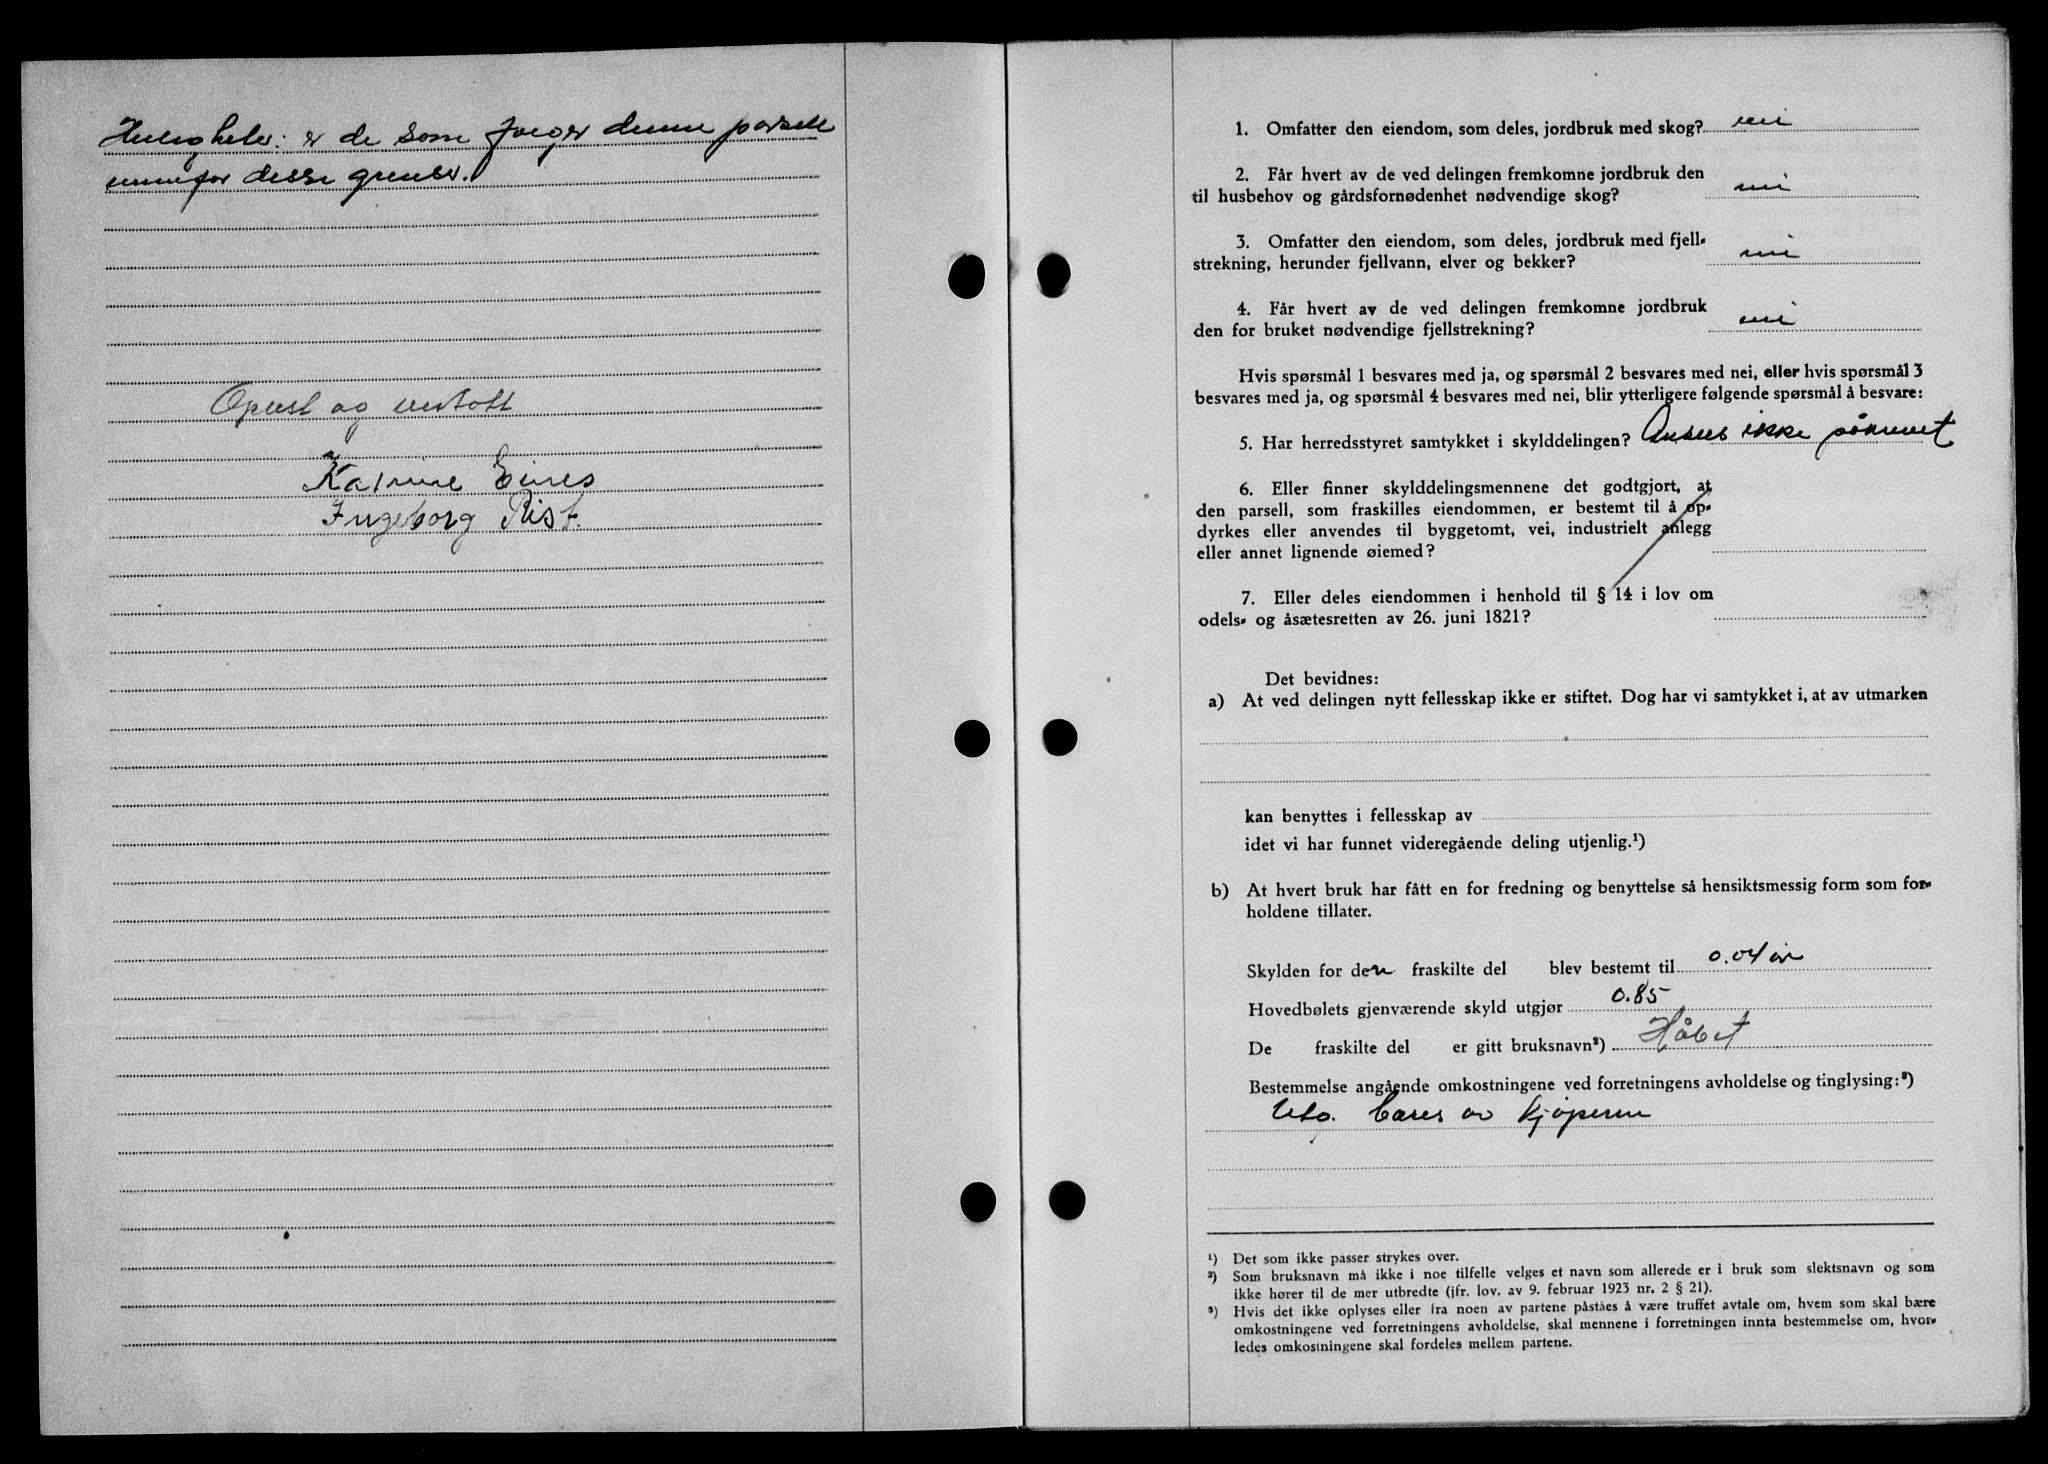 er de som denne parsell
innenfor disse grenser.
Oplest og vedtatt
Katrine Eines
Ingeborg Rist.
1. Omfatter den eiendom, som deles, jordbruk med skog? nei
2. Får hvert av de ved delingen fremkomne jordbruk den
til husbehov og gårdsfornødenhet nødvendige skog? nei
3. Omfatter den eiendom, som deles, jordbruk med fjell-
strekning, herunder fjellvann, elver og bekker? nei
4. Får hvert av de ved delingen fremkomne jordbruk
den for bruket nødvendige fjellstrekning? nei
Hvis spørsmål 1 besvares med ja, og spørsmål 2 besvares med nei, eller hvis spørsmål 3
besvares med ja, og spørsmål 4 besvares med nei, blir ytterligere følgende spørsmål å besvare:
5. Har herredsstyret samtykket i skylddelingen? Ansees ikke påkrevet
6. Eller finner skylddelingsmennene det godtgjort, at
den parsell, som fraskilles eiendommen, er bestemt til å op-
dyrkes eller anvendes til byggetomt, vei, industrielt anlegg
eller annet lignende øiemed?
7. Eller deles eiendommen i henhold til § 14 i lov om
odels- og åsætesretten av 26. juni 1821?
Det bevidnes:
a) At ved delingen nytt fellesskap ikke er stiftet. Dog har vi samtykket i, at av utmarken
kan benyttes i fellesskap av
idet vi har funnet videregående deling utjenlig.¹)
b) At hvert bruk har fått en for fredning og benyttelse så hensiktsmessig form som for-
holdene tillater.
Skylden for den fraskilte del blev bestemt til 0.04 øre
Hovedbølets gjenværende skyld utgjør 0.85
De fraskilte del er gitt bruksnavn²) Håbet
Bestemmelse angående omkostningene ved forretningens avholdelse og tinglysing:³)
bæres av kjøperne
¹) Det som ikke passer strykes over.
²) Som bruksnavn må ikke i noe tilfelle velges et navn som allerede er i bruk som slektsnavn og som
ikke hører til de mer utbredte (jfr. lov. av 9. februar 1923 nr. 2 § 21).
³) Hvis det ikke oplyses eller fra noen av partene påståes å være truffet avtale om, hvem som skal bære
omkostningene ved forretningens avholdelse, skal mennene i forretningen innta bestemmelse om, hvor-
ledes omkostningene skal fordeles mellem partene.